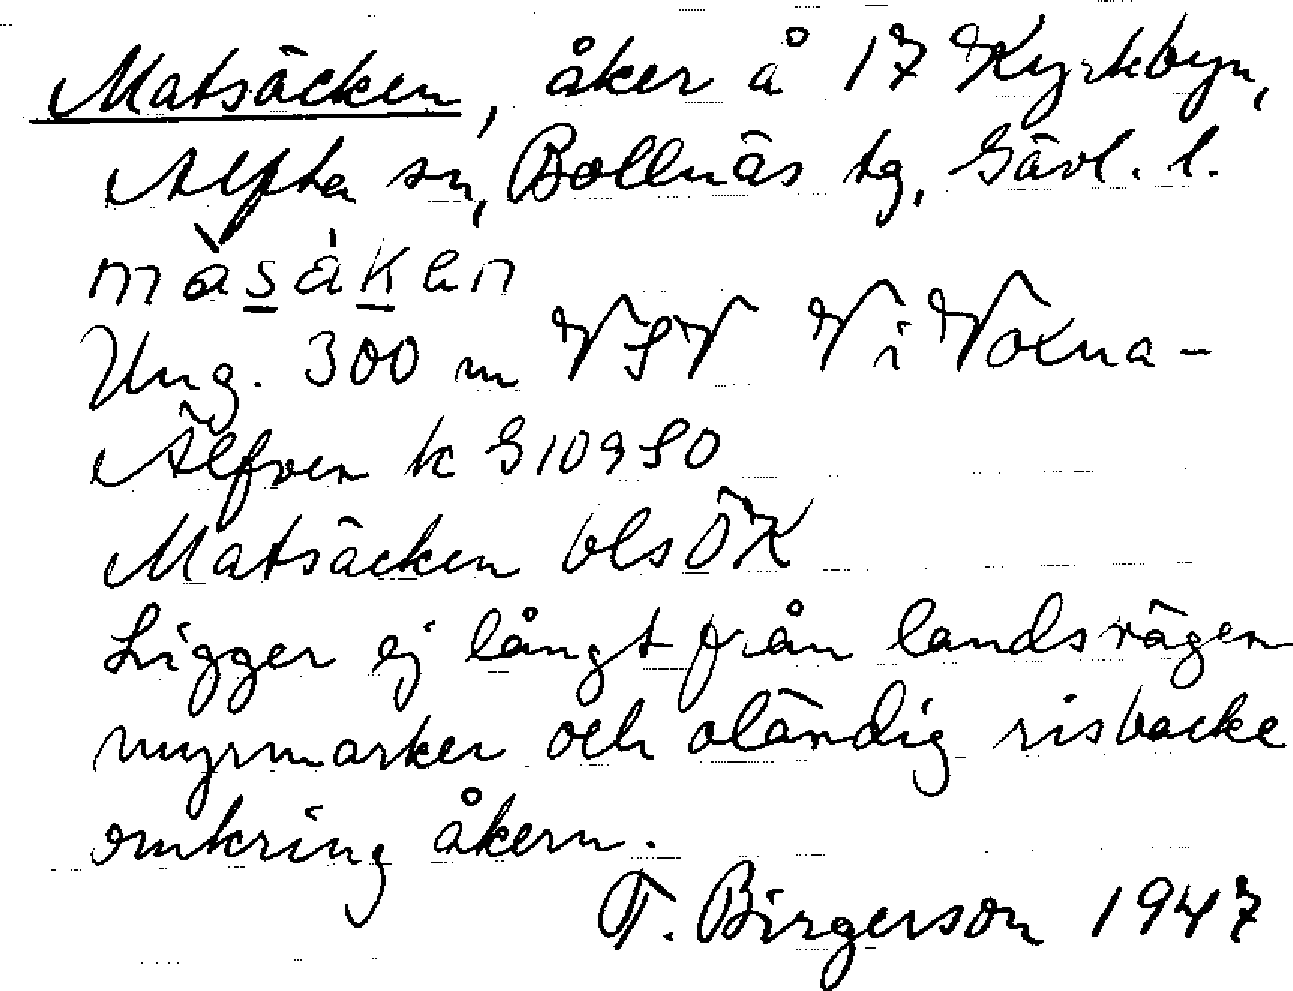 Matsäcken, åker å 17 Kyrkbyn,
Alfta sn, Bollnäs tg, Gävl. l.
màsákən
Ung. 300 m VSV V i Voxna-
Älfven k G10950
Matsäcken bls ÖK
Ligger ej långt från landsvägen
myrmarker och oländig risbacke
omkring åkern.
T. Birgerson 1947